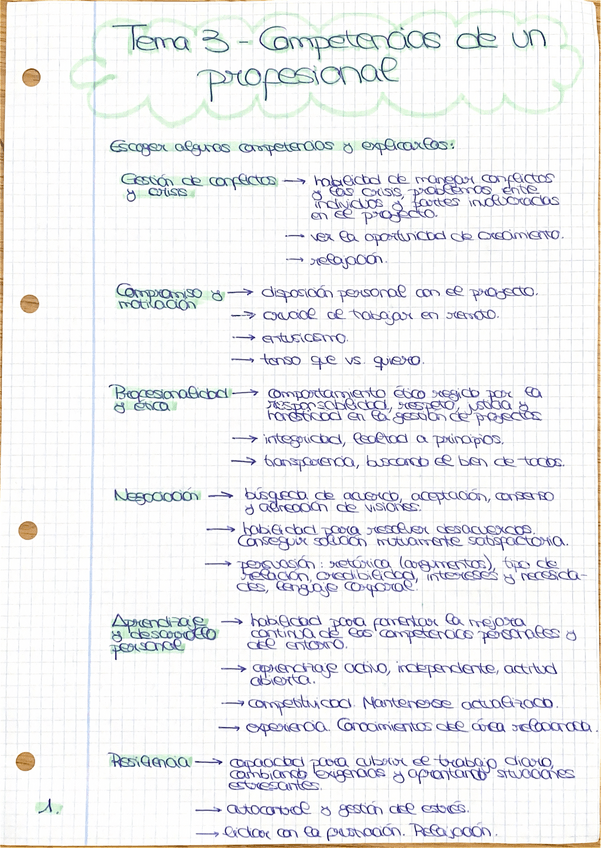 Tema 3 - Competencias de un
profesional
Escoger algunas competencias y explicarlas:
Gestión de conflictos → habilidad de manejar conflictos
y crisis y las crisis, problemas entre
individuos y partes involucradas
en el proyecto.
→ ver la oportunidad de crecimiento.
→ relajación.
Compromiso y → disposición personal con el proyecto.
motivación
→ crucial al trabajar en remoto.
→ entusiasmo.
→ tengo que vs. quiero.
Profesionalidad → comportamiento ético regido por la
y ética responsabilidad, respeto, justicia y
honestidad en la gestión de proyectos
→ integridad, lealtad a principios.
→ transparencia, buscando el bien de todos.
Negociación → búsqueda de acuerdo, aceptación, consenso
y alineación de visiones.
→ habilidad para resolver desacuerdos.
Conseguir solución mutuamente satisfactoria.
→ persuasión: retórica (argumentos), tipo de
relación, credibilidad, intereses y necesida-
des, lenguaje corporal.
Aprendizaje → habilidad para fomentar la mejora
y desarrollo continua de las competencias personales y
personal del entorno.
→ aprendizaje activo, independiente, actitud
abierta.
→ competitividad. Mantenerse actualizado.
→ experiencia. Conocimientos del área relacionada.
Resiliencia → capacidad para cubrir el trabajo diario,
cambiando exigencias y afrontando situaciones
estresantes.
→ autocontrol y gestión del estrés.
→ lidiar con la frustración. Relajación.
1.